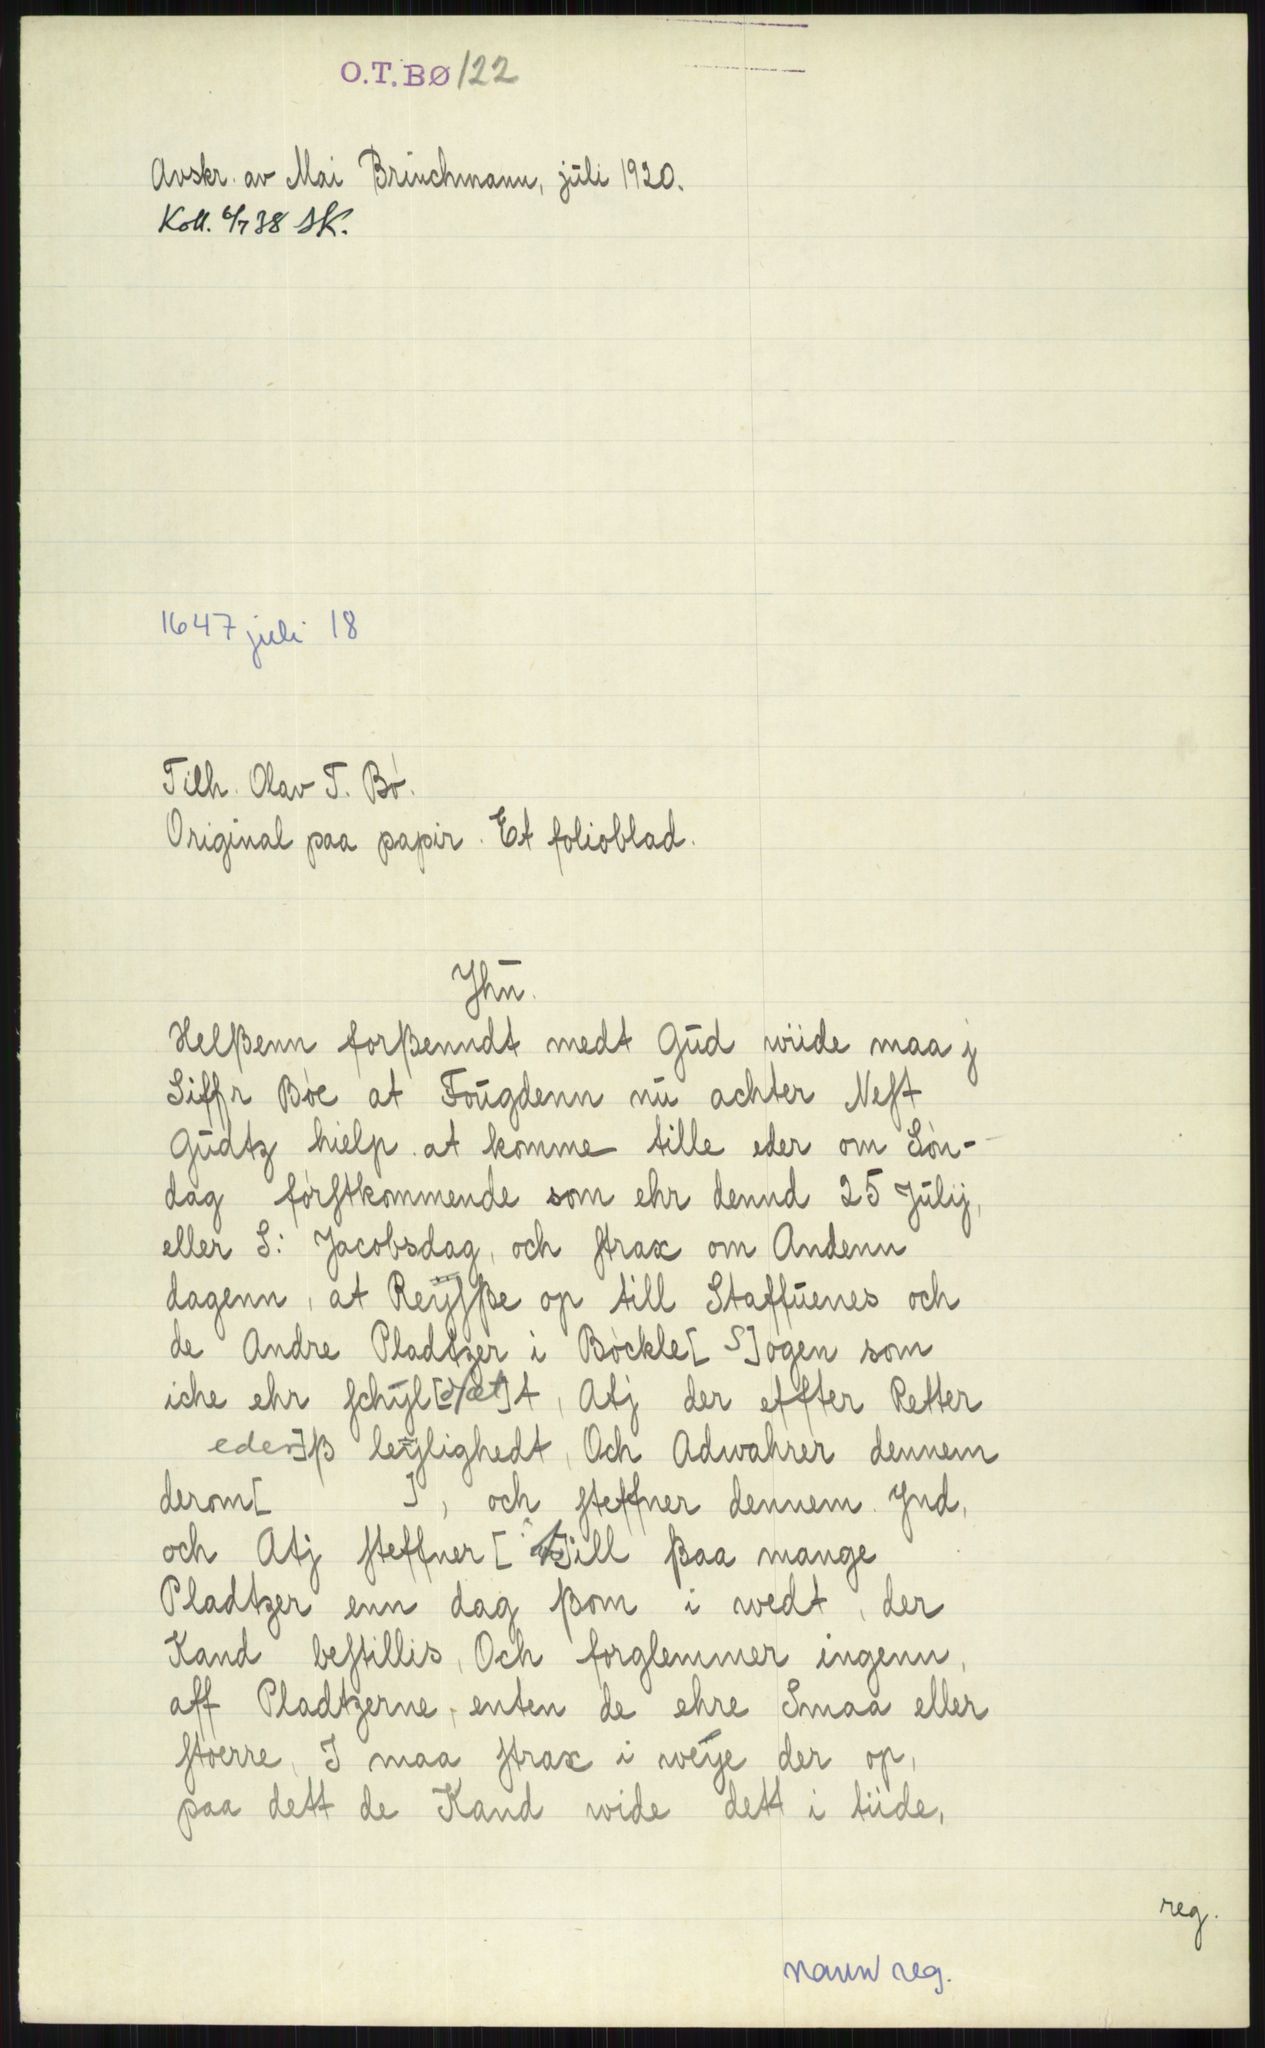 O.T.BØ/22
Avskr. av Mai Brinchmann, jūli 1920.
Koll. 6/7 38 SK.
1647 juli 18
Tilh. Olav T. Bö.
Original paa papir. Et folioblad.
Jhū.
Helßenn forßenndt medt Gūd wiide maa j
Siffr Böe at Foūgdenn nū achter Nest
Gūdtz hielp at komme tille eder om Sön-
dag förstkommende som ehr dennd 25 Jūlij,
eller S: Jacobsdag, och strax om Andenn
dagenn, at Reÿsße op till Staffūenes och
de Andre Pladtzer i Böckle[ S]ogen som
iche ehr schÿl[dset]t, Atj der effter Retter
eder]ß leÿlighedt, Och Adwahrer dennem
derom[ ], och steffner dennem Jnd,
och Atj steffner [ t]ill ßaa mange
Pladtzer enn dag ßom i wedt, der
Kand bestillis, Och forglemmer ingenn,
aff Pladtzerne, enten de ehre Smaa eller
stoerre, I maa strax i weÿe der op,
paa dett de Kand wide dett i tiide,
reg.
navn reg.